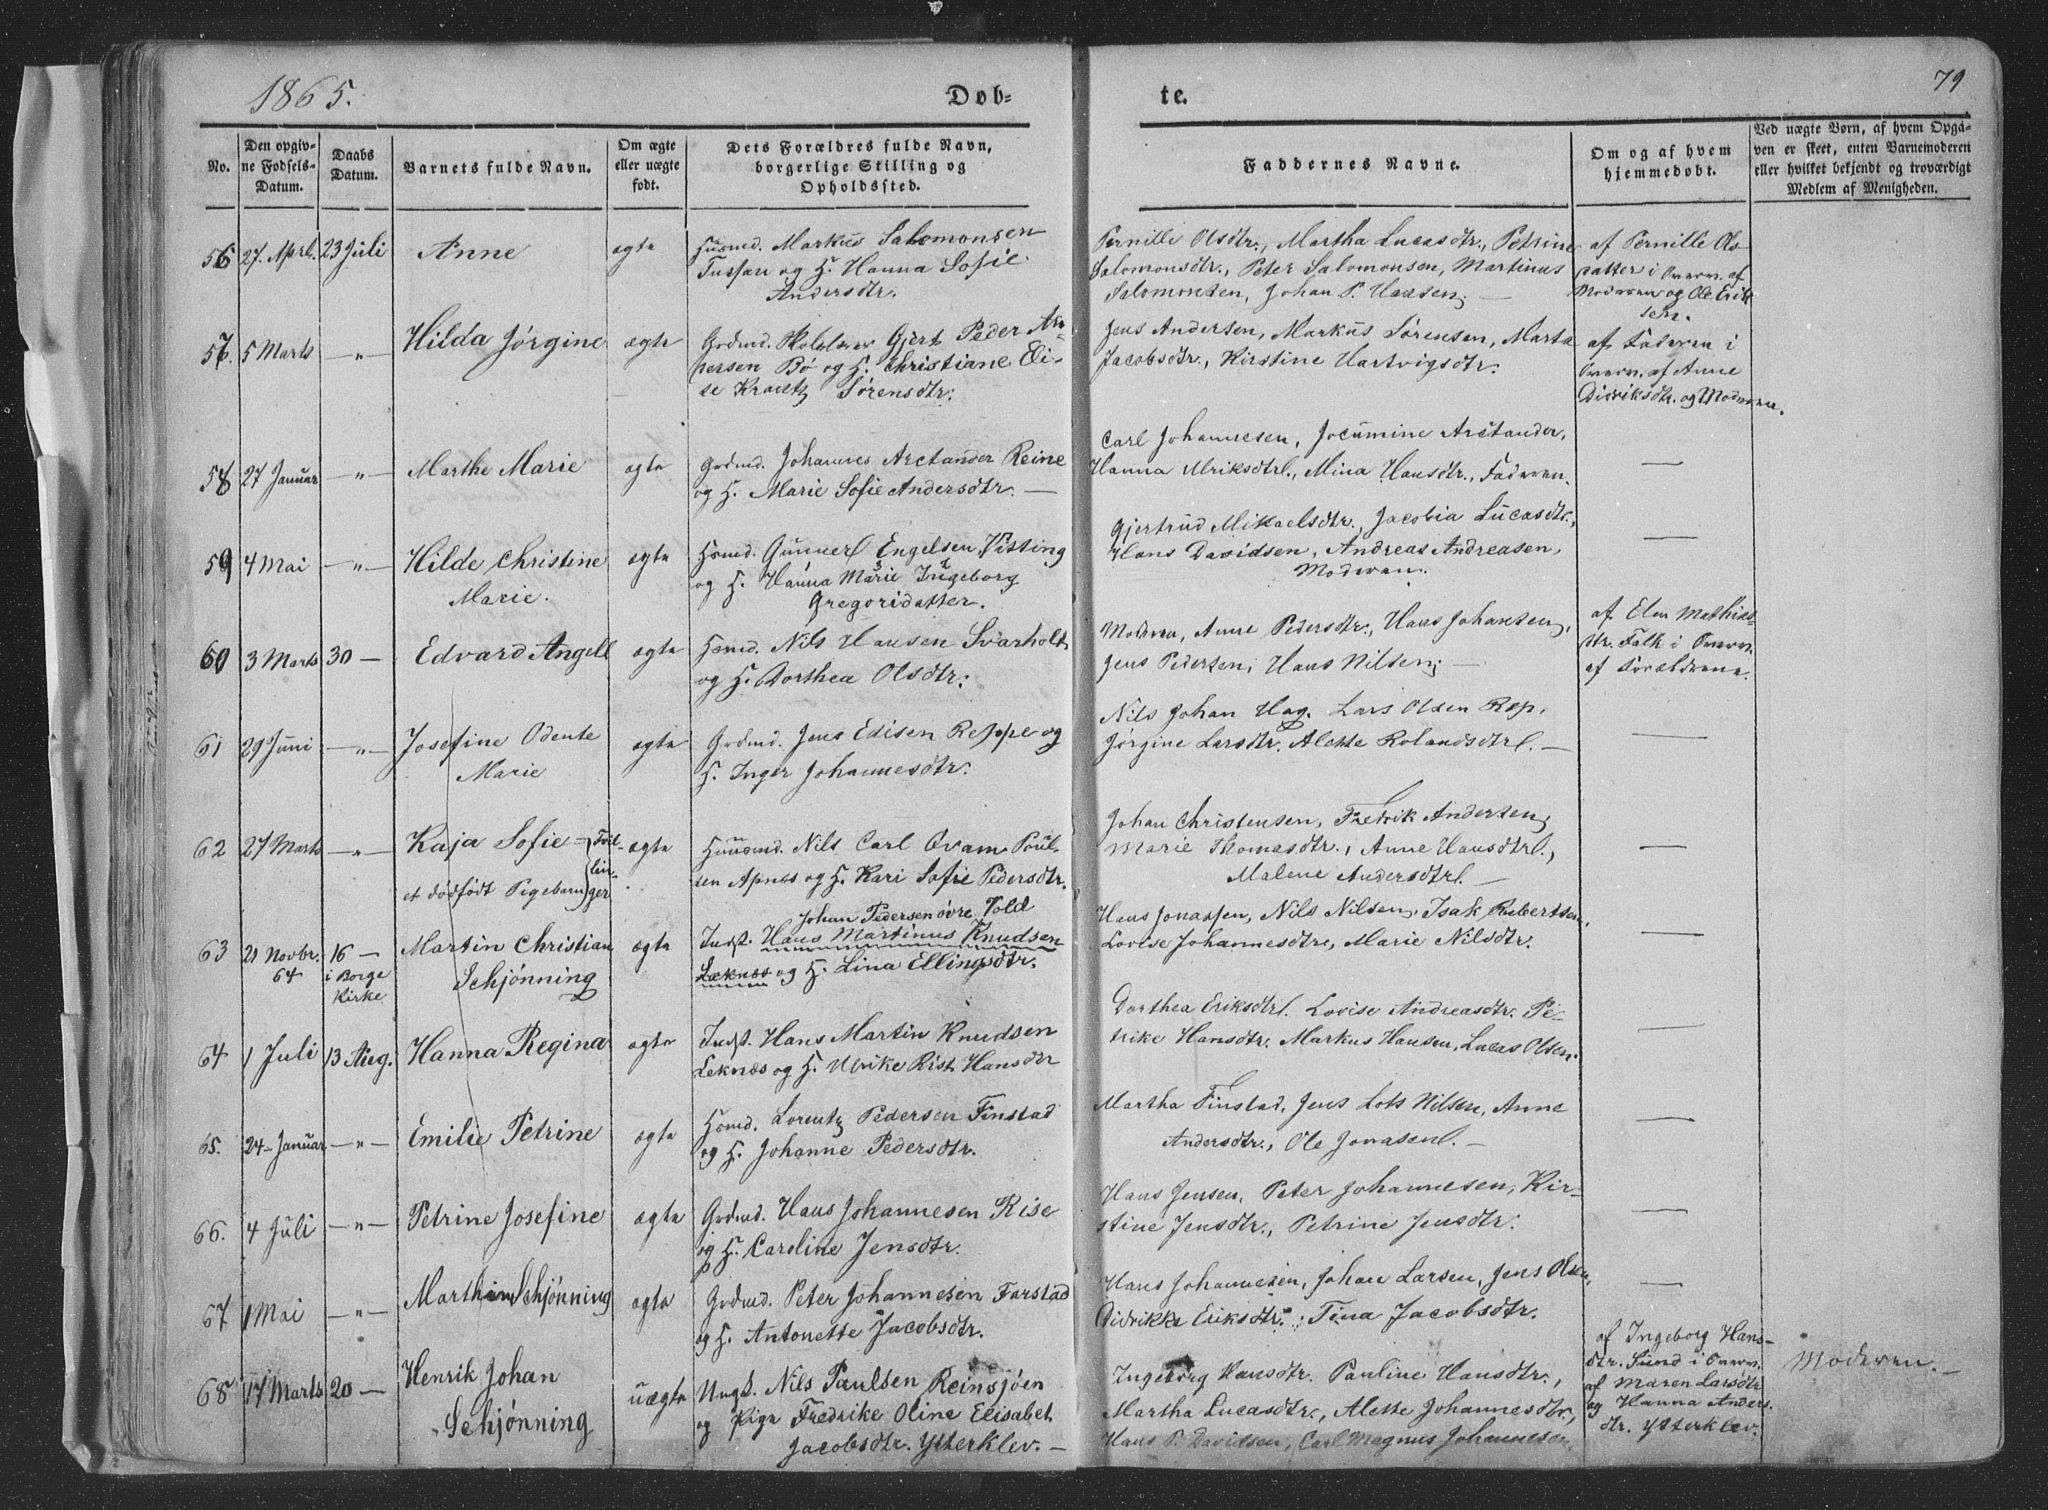 1865.
Døb-
te.
79
No.
Den opgiv-
ne Fødsels-
Datum.
Daabs
Datum.
Barnets fulde Navn.
Om ægte
eller uægte
født.
Dets Forældres fulde Navn,
borgerlige Stilling og
Opholdssted.
Faddernes Navne.
Om og af hvem
hjemmedøbt.
Ved uægte Børn, af hvem Opgi-
ven er skeet, enten Barnemoderen
eller hvilket bekjendt og troværdigt
Medlem af Menigheden.
56 27. April. 23 Juli Anne ægte Husmd. Markus Salomonsen
Tussan og H. Hanna Sofie
Andersdtr.
Pernille Olsdtr., Martha Lucasdtr., Petrine
Salomonsdtr., Peter Salomonsen, Martinus
Salomonsen, Johan P. Hansen. —
af Pernille Ols
datter i Overv. af
Moderen og Ole Erik
sen.
57. 5 Marts —„— Hilda Jørgine ægte Grdmd. Skolelærer Gjert Peder As-
persen Bø og H. Christiane Eli-
se Krantz Sørensdtr.
Jens Andersen, Markus Sørensen, Marta
Jacobsdtr., Kirstine Hartvigsdtr.
af Faderen i
Overv. af Anne
Didriksdtr. og Moderen.
58 27 Januar —„— Marthe Marie ægte Grdmd. Johannes Arctander Reine
og H. Marie Sofie Andersdtr. —
Carl Johannesen, Jocumine Arctander,
Hanna Ulriksdtr., Mina Hansdtr., Faderen.
—
59 4 Mai —„— Hilde Christine
Marie.
ægte Hsmd. Gunner Engelsen Visting
og H. Hanna Marie Ingeborg
Gregoridatter.
Gjertrud Mikaelsdtr., Jacobia Lucasdtr.,
Hans Davidsen, Andreas Andreasen,
Moderen.
—
60 3 Marts 30 — Edvard Angell ægte Hsmd. Nils Hansen Svarholt
og H. Dorthea Olsdtr.
Moderen, Anne Pedersdtr., Hans Johansen,
Jens Pedersen, Hans Nilsen. —
af Elen Mathias
dtr. Falk i Overv.
af Forældrene.
61 29 Juni —„— Josefine Odente
Marie
ægte Grdmd. Jens Edisen Reppe og
H. Inger Johannesdtr.
Nils Johan Hag. Lars Olsen Rep,
Jørgine Larsdtr. Alette Rolandsdtr. —
—
62 27 Marts —„— Kaja Sofie — Tvil-
lin-
ger
et dødfødt Pigebarn
ægte Huusmd. Nils Carl Qvam Poul-
sen Apnes og H. Kari Sofie Pedersdtr.
Johan Christensen, Fredrik Andersen,
Marie Thomasdtr., Anne Hansdtr.,
Malene Andersdtr. —
—
63 21 Novbr.
64
16 —
i Borge
Kirke
Martin Christian
Schjønning
ægte Johan Pedersen øvre Vold
Indst. Hans Martinus Knudsen
Læknes og H. Lina Ellingsdtr.
Hans Jonassen, Nils Nilsen, Isak Robertsen,
Lovise Johannesdtr, Marie Nilsdtr.
—
64 1 Juli 13 Aug. Hanna Regina ægte Indst. Hans Martin Knudsen
Leknes og H. Ulrike Rist Hansdtr
Dorthea Eriksdtr. Lovise Andreasdtr. Pe-
trike Hansdtr. Markus Hansen, Lucas Olsen.
—
65. 24 Januar —„— Emilie Petrine ægte Hsmd. Lorentz Pedersen Finstad
og H. Johanne Pedersdtr.
Martha Finstad, Jens Lots Nilsen, Anne
Andersdtr., Ole Jonasen. —
—
66. 4 Juli —„— Petrine Josefine ægte Grdmd. Hans Johannesen Rise
og H. Caroline Jensdtr.
Hans Jensen, Peter Johannesen, Kir-
stine Jensdtr., Petrine Jensdtr.
—
67 1 Mai —„— Marthin Schjønning ægte Grdmd. Peter Johannesen Farstad
og H. Antonette Jacobsdtr.
Hans Johannesen, Johan Larsen, Jens Olsen,
Didrikke Eriksdtr., Tina Jacobsdtr.
—
68 17 Marts 20 — Henrik Johan
Schjønning
uægte Ungk. Nils Paulsen Reinsjøen
og Pige Fredrike Oline Elisabet
Jacobsdtr. Ytterklev. —
Ingeborg Hansdtr. Pauline Hansdtr.,
Martha Lucasdtr., Alette Johannesdtr.,
Hans P. Davidsen, Carl Magnus Johannesen.
af Ingeborg Hans-
dtr. Sund i Overv.
af Maren Larsdtr
og Hanna Anders
dtr. Ytterklev.
Moderen. —